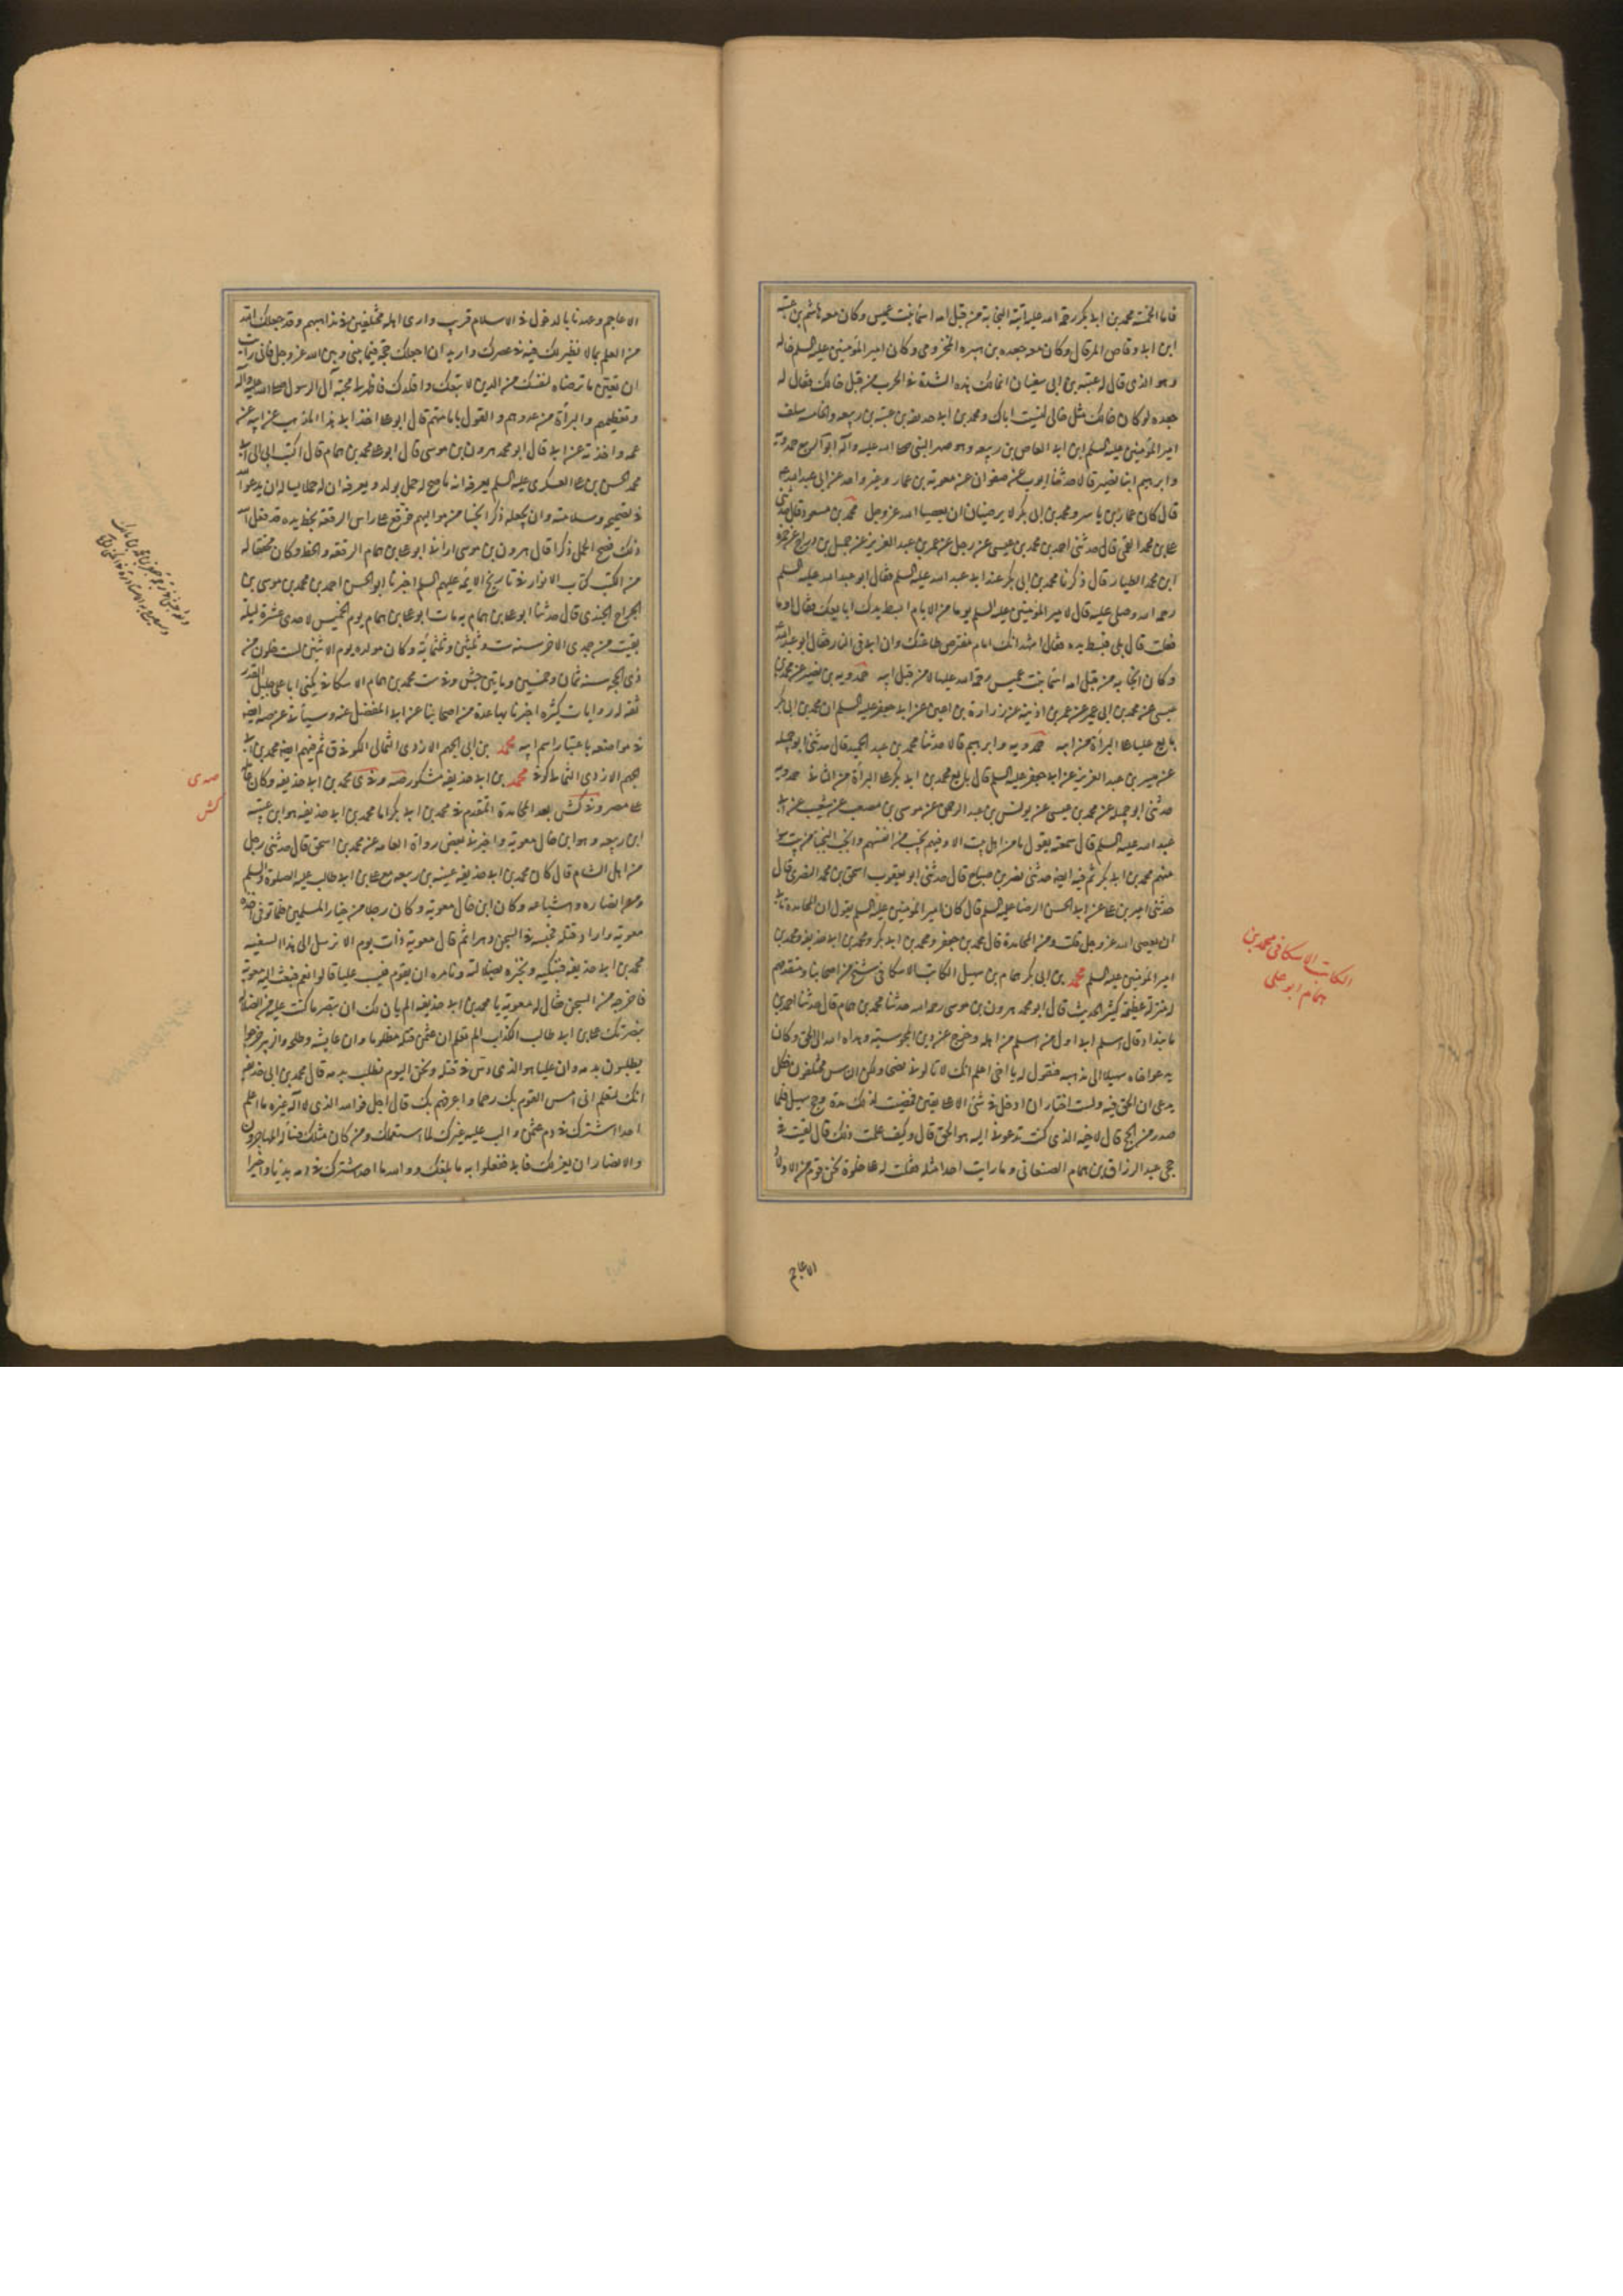 فاما الخمسة محمد بن ابي بكر رحمة الله عليه اتته النجابة من قبل امه اسما بنت عميس وكان معه هاشم بن عتبة
ابن ابي وقاص المرقال وكان معه جعده بن هبيره المخزومي وكان امير المؤمنين عليه السلم خاله
وهو الذي قال له عتبه بن ابي سفيان انما لك هذه الشدة في الحرب من قبل خالك فقال له
جعده لو كان خالك مثل خالي لنسيت اباك ومحمد بن ابي حذيفه بن عتبه بن ربيعه والخامس سلف
امير المؤمنين عليه السلم ابن ابي العاص بن ربيعه وهو صهر النبي صلى الله عليه واله ابو الربيع حمدويه
وابراهيم ابنا نصير قالا حدثنا ايوب عن صفوان عن معوية بن عمار وغير واحد عن ابي عبد الله ع
قال كان عمار بن ياسر ومحمد بن ابي بكر لا يرضيان ان يعصيا الله عز وجل محمد بن مسعود قال حدثني
علي بن محمد القمي قال حدثني احمد بن محمد بن عيسى عن رجل عن عمر بن عبد العزيز عن جميل بن دراج عن حمزه
ابن محمد الطيار قال ذكرنا محمد بن ابي بكر عند ابي عبد الله عليه السلم فقال ابو عبد الله عليه السلم
رحمه الله وصلى عليه قال لامير المؤمنين عليه السلم يوما من الايام ابسط يدك ابايعك فقال اوما
فعلت قال بلى فبسط يده فقال اشهد انك امام مفترض طاعتك وان ابي في النار فقال ابو عبد الله
وكان النجابه من قبل امه اسما بنت عميس رحمة الله عليها لا من قبل ابيه حمدويه بن نصير عن محمد بن
عيسى عن محمد بن ابي عمير عن عمر بن اذينه عن زرارة بن اعين عن ابي جعفر عليه السلم ان محمد بن ابي بكر
بايع عليا على البرأة من ابيه حمدويه وابراهيم قالا حدثنا محمد بن عبد الحميد قال حدثني ابو جميله
عن ميسر بن عبد العزيز عن ابي جعفر عليه السلم قال بايع محمد بن ابي بكر على البرأة من الثاني حمدويه
حدثني ابو جميله عن محمد بن عيسى عن يونس بن عبد الرحمن عن موسى بن مصعب عن شعيب عن ابي
عبد الله عليه السلم قال سمعته يقول ما من اهل بيت الا وفيهم نجيب من انفسهم وانجب النجبا من بيت سو
منهم محمد بن ابي بكر ثم فيه ايضا حدثني نصر بن صباح قال حدثني ابو يعقوب اسحق بن محمد البصري قال
حدثني امير بن علي عن ابي الحسن الرضا عليه السلم قال كان امير المؤمنين عليه السلم يقول ان المحامدة تابى
ان يعصى الله عز وجل قلت ومن المحامدة قال محمد بن جعفر ومحمد بن ابي بكر ومحمد بن ابي حذيفه ومحمد بن
امير المؤمنين عليه السلم محمد بن ابي بكر همام بن سهيل الكاتب الاسكافي شيخ من اصحابنا ومتقدمهم
له منزلة عظيمة كثير الحديث قال ابو محمد هرون بن موسى رحمه الله حدثنا محمد بن همام قال حدثنا احمد بن
مابنداد قال اسلم ابي اول من اسلم من اهله وخرج عن دين المجوسية وهداه الله الى الحق وكان
يدعو اخاه سهيلا الى مذهبه فيقول له يا اخي اعلم انك لا تالوني نصحا ولكن الناس مختلفون فكل
يدعي ان الحق فيه ولست اختار ان ادخل في شئ الا على يقين فمضت لذلك مدة وحج سهيل فلما
صدر من الحج قال لاخيه الذي كنت تدعوني اليه هو الحق قال وكيف علمت ذلك قال لقيت في
حجي عبد الرزاق بن همام الصنعاني وما رايت احدا مثله فقلت له على خلوة نحن قوم من اولاد
الاعاجم
الكاتب الاسكافي محمد بن
همام ابو علي
الاعاجم وعهدنا بالدخول في الاسلام قريب وارى اهله مختلفين في مذاهبهم وقد جعلك الله
من العلم بما لا نظير لك فيه في عصرك واريد ان اجعلك حجة فيما بيني وبين الله عز وجل فان رايت
ان تبين ما ترضاه لنفسك من الدين لاتبعك واقلدك فاظهر لي محبة آل الرسول صلى الله عليه وآله
وتعظيمهم والبرأة من عدوهم والقول بامامتهم قال ابو علي اخذ ابي هذا المذهب عن ابيه عن
عمه واخذته عن ابي قال ابو محمد هرون بن موسى قال ابو علي محمد بن همام قال كتب ابي الى ابي
محمد الحسن بن علي العسكري عليه السلم يعرفه انه ما صح له حمل بولد ويعرفه ان له حملا ويساله ان يدعو الله
في تصحيحه وسلامته وان يجعله ذكرا نجيبا من مواليهم فوقع على راس الرقعة بخط يده قد فعل الله
ذلك فصح الحمل ذكرا قال هرون بن موسى اراني ابو علي بن همام الرقعة والخط وكان محققا له
من الكتب كتاب الانوار في تاريخ الايمه عليهم السلم اخبرنا ابو الحسن احمد بن محمد بن موسى بن
الجراح الجندي قال حدثنا ابو علي بن همام به مات ابو علي بن همام يوم الخميس لاحدى عشرة ليلة
بقيت من جمدي الاخر سنة ست وثلثين وثلثمائه وكان مولده يوم الاثنين لست خلون من
ذي الحجه سنه ثمان وخمسين ومايتين جش وفي ست محمد بن همام الاسكافي يكنى ابا علي جليل القدر
ثقه له روايات كثيره اخبرنا بها عدة من اصحابنا عن ابي المفضل عنه وسياتي عن صه ايضا
في مواضعه باعتبار اسم ابيه محمد بن ابي الجهم الازدي الثمالي الكوفي ق ثم فيهم ايضا محمد بن ابي
الجهم الازدي الثمالي كوفي محمد بن ابي حذيفه مشكور صه وفي ي محمد بن ابي حذيفه وكان عامله
على مصر وفي كش بعد المحامدة المتقدم في محمد بن ابي بكر اما محمد بن ابي حذيفه هو ابن عتبه
ابن ربيعه وهو ابن خال معويه واخبرني بعض رواة العامه عن محمد بن اسحق قال حدثني رجل
من اهل الشام قال كان محمد بن ابي حذيفه عتبه بن ربيعه مع علي بن ابي طالب عليه الصلوة والسلم
ومن انصاره واشياعه وكان ابن خال معويه وكان رجلا من خيار المسلمين فلما توفي اخذه
معويه واراد قتله فحبسه في السجن دهرا ثم قال معوية ذات يوم الا نرسل الى هذا السفيه
محمد بن ابي حذيفه فنبكيه ونخبره بضلالته ونامره ان يقوم فيسب عليا قالوا نعم فبعث اليه معوية
فاخرجه من السجن فقال له معوية يا محمد بن ابي حذيفه الم يان لك ان تبصر ما كنت عليه من الضلاله
بنصرتك علي بن ابي طالب الكذاب الم تعلم ان عثمن قتل مظلوما وان عايشه وطلحه والزبير خرجوا
يطلبون بدمه وان عليا هو الذي دس في قتله ونحن اليوم نطلب بدمه قال محمد بن ابي حذيفه
انك لتعلم اني امس القوم بك رحما واعرفهم بك قال اجل فوالله الذي لا اله غيره ما اعلم
احدا اشترك في دم عثمن والب عليه غيرك لما استعملك ومن كان مثلك فساله المهاجرون
والانصار ان يعزلك فابى ففعلوا به ما بلغك ووالله ما احد اشترك في دمه بديا واخيرا
صه ي
كش